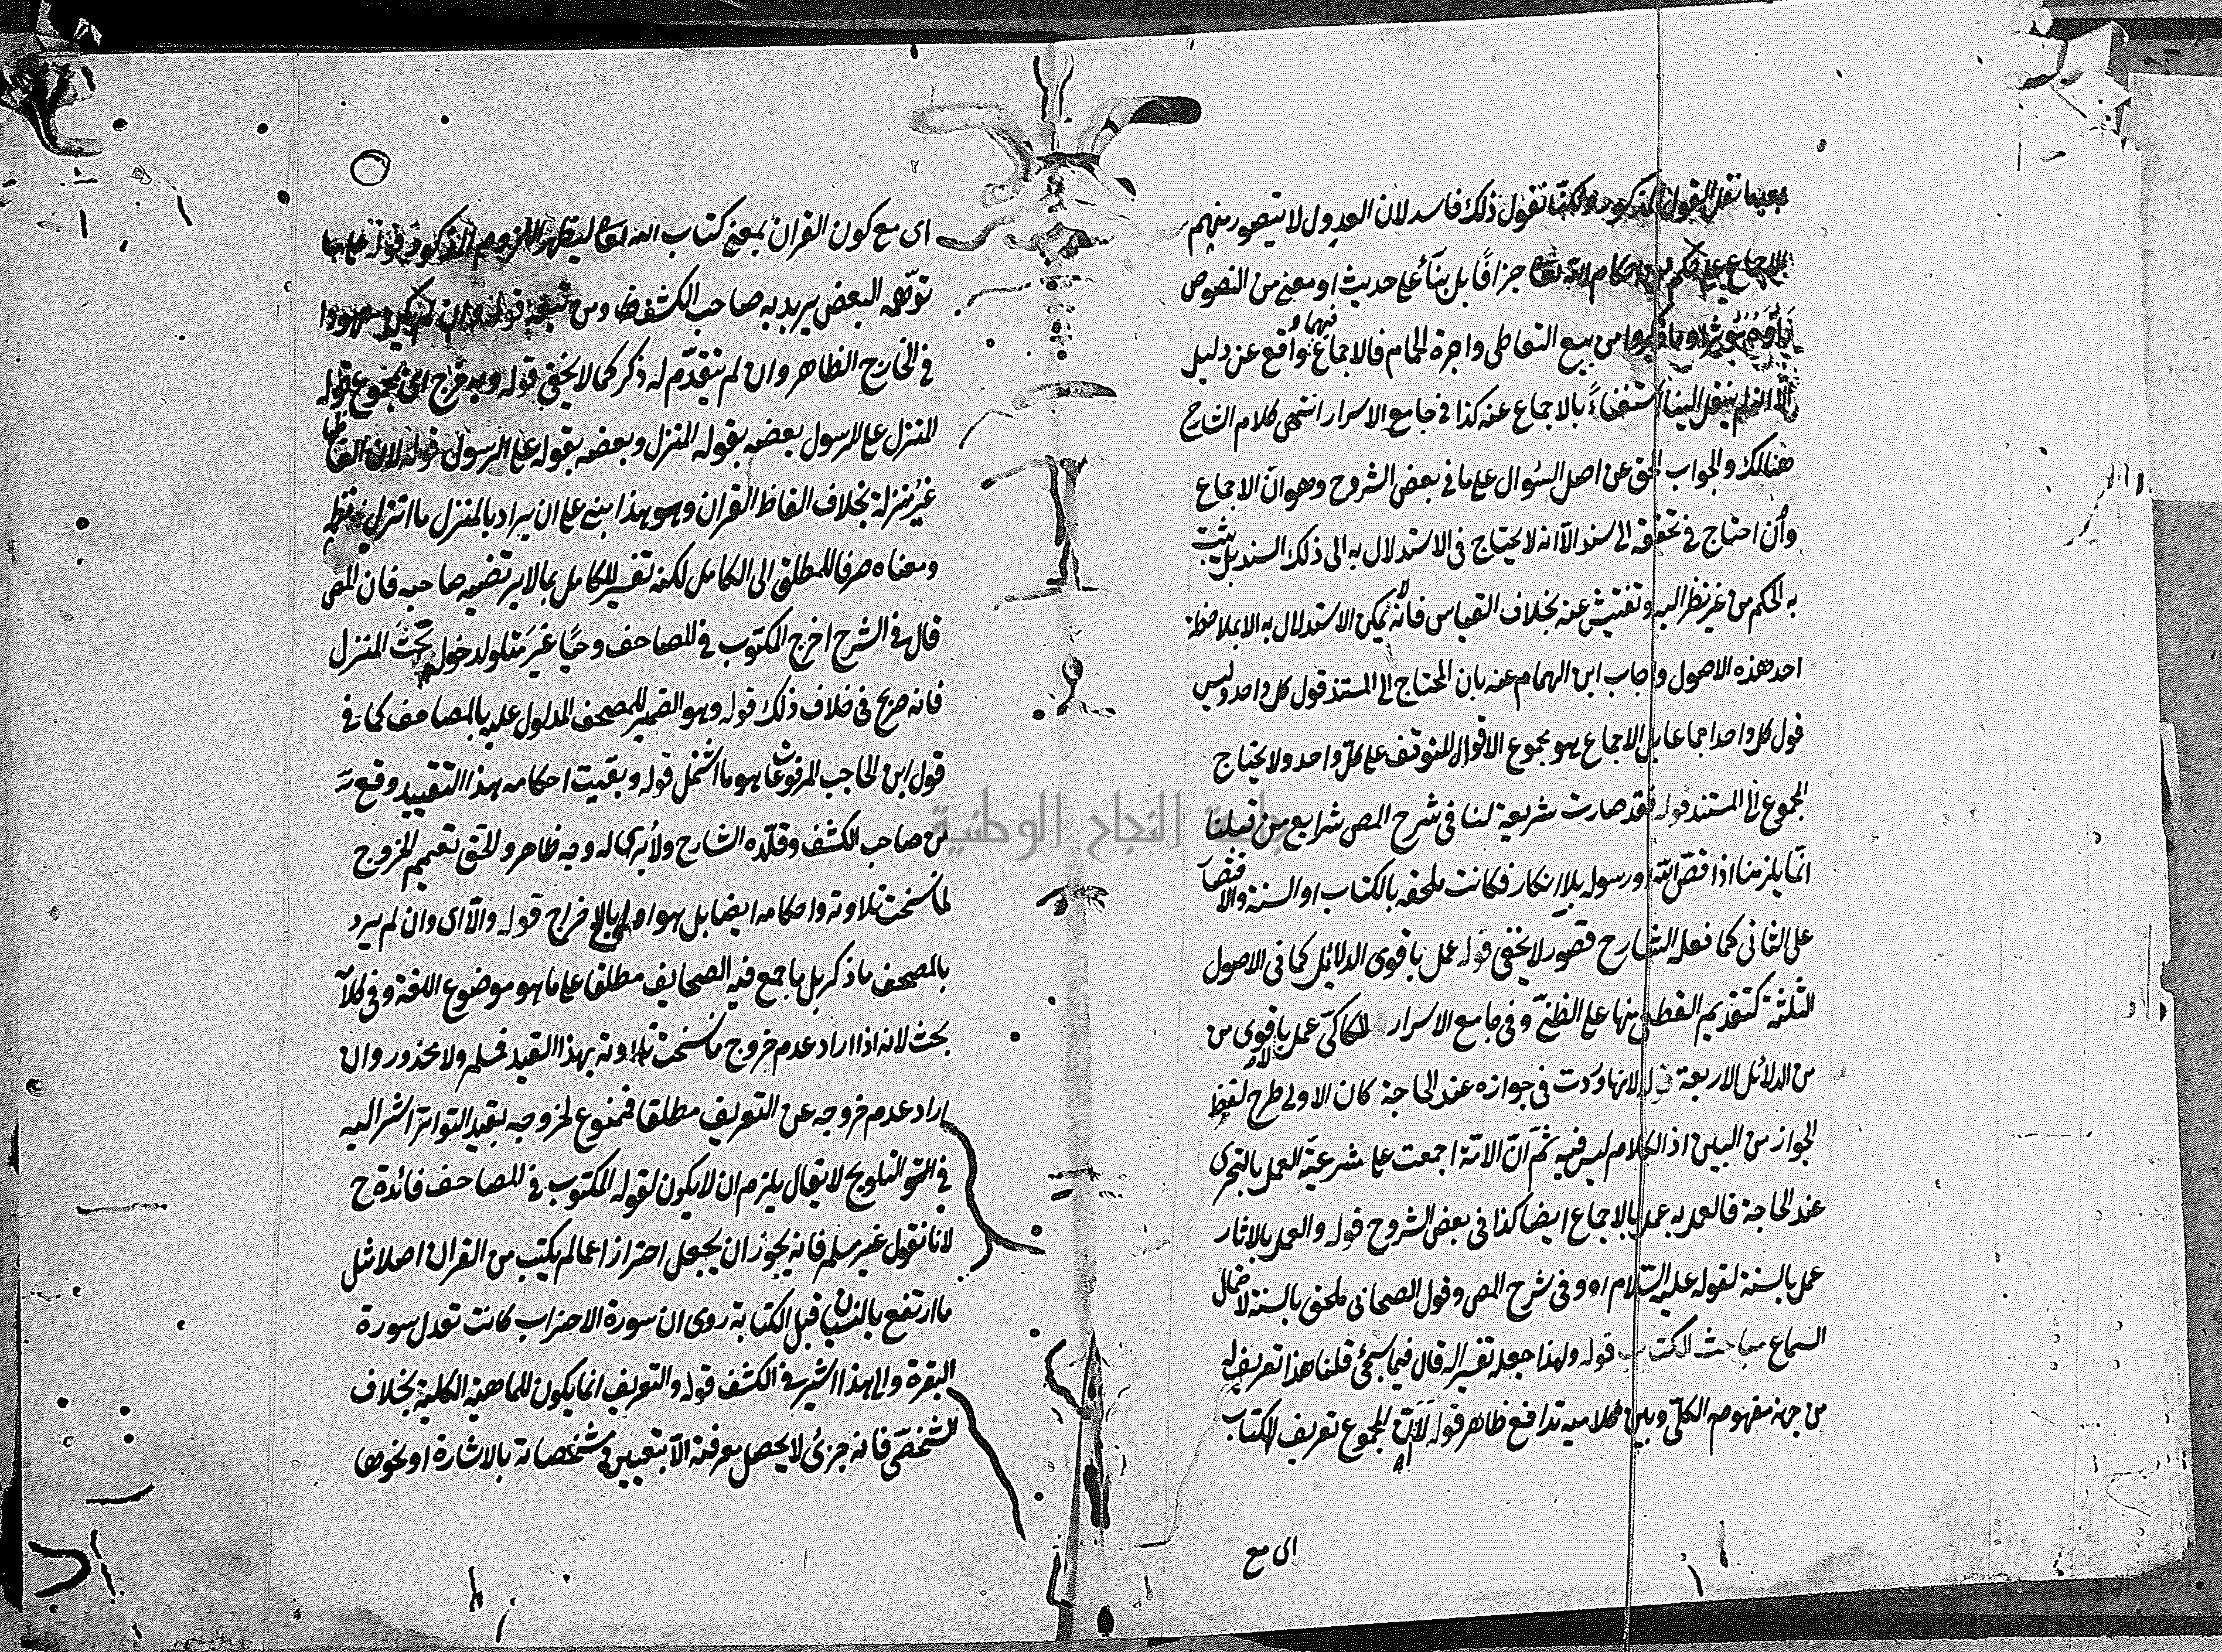 نقول ذلك فاسد لان العدول لا يتصور منهم
الاجماع على حكم من احكام الله تعالى جزافًا بل بنآءً على حديث او معنى من النصوص
من بيع التعاطى واجرة الحمام فالاجماع فيهما واقع عن دليل
الا انه لم ينقل الينا استغناءً بالاجماع عنه كذا فى جامع الاسرار انتهى كلام الشارح
هنالك والجواب الحق عن اصل السؤال على ما فى بعض الشروح وهو ان الاجماع
وان احتاج فى تحققه الى سند الا انه لا يحتاج فى الاستدلال به الى ذلك السند بل يثبت
به الحكم من غير نظر اليه وتفتيش عنه بخلاف القياس فانه لا يمكن الاستدلال به الا بملاحظة
احد هذه الاصول واجاب ابن الهمام عنه بان المحتاج الى المستند قول كل واحد وليس
قول كل واحد اجماعا بل الاجماع هو مجموع الاقوال المتوقف على كلّ واحد ولا يحتاج
المجموع الى المستند قوله فقد صارت شريعة لنا فى شرح المص شرايع من قبلنا
انّما يلزمنا اذا قصّ الله او رسوله بلا انكار فكانت ملحقه بالكتاب او السنة والاقتصار
على الثانى كما فعله الشارح قصور لا يخفى قوله عمل باقوى الدلائل كما فى الاصول
الثلثة كتقديم القطعى منها على الظنىّ وفى جامع الاسرار للكاكىّ عمل باقوى من
من الدلائل الاربعة قوله لانها وردت فى جوازه عند الحاجة كان الاولى طرح لفظ
الجواز من البين اذ الكلام ليس فيه ثمّ انّ الامّة اجمعت على شرعيّة العمل بالتحرى
عند الحاجة فالعمل به عمل بالاجماع ايضا كذا فى بعض الشروح قوله والعمل بالاثار
عمل بالسنة لقوله عليه السّلام اه وفى شرح المص وقول الصحابى ملحق بالسنة لاحتمال
السماع مباحث الكتاب قوله ولهذا جعله تفسيرا له قال فيما سيجئ قلنا هذا تعريف له
من جهة مفهومه الكلىّ وبين كلاميه تدافع ظاهر قوله لانّ المجموع تعريف للكتاب
اى مع
اى مع كون القران بمعنى كتاب الله تعالى ليظهر اللزوم المذكور قوله على ما
توهّمه البعض يريد به صاحب الكشف ومن تبعه قوله وان لم يكن معهودا
فى الخارج الظاهر وان لم يتقدّم له ذكر كما لا يخفى قوله وبه خرج اى بمجموع قوله
المنزل على الرسول بعضه بقوله المنزل وبعضه بقوله على الرسول قوله لان الفاظها
غير منزلة بخلاف الفاظ القران وهو هذا مبنى على ان يراد بالمنزل ما انزل نظمه
ومعناه صرفا للمطلق الى الكامل لكنه تفسير للكامل بما لا يرتضيه صاحبه فان المص
قال فى الشرح اخرج المكتوب فى المصاحف وحيًا غيرَ متلو لدخوله تحت المنزل
فانه صريح فى خلاف ذلك قوله وهو الضمير للمصحف المدلول عليه بالمصاحف كما فى
قول ابن الحاجب المرفوعات هو ما اشتمل قوله وبقيت احكامه هذا التقييد وقع
من صاحب الكشف وقلّده الشارح ولا يُرى له وجه ظاهر والحق تعميم الخروج
لما نسخت تلاوته واحكامه ايضا بل هو اولى بالاخراج قوله والاّ اى وان لم يرد
بالمصحف ما ذكر بل ما جمع فيه الصحايف مطلقا على ما هو موضوع اللغة وفى كلامه
بحث لانه اذا اراد عدم خروج ما نسخت تلاوته بهذا القيد فمسلم ولا محذور وان
اراد عدم خروجه عن التعريف مطلقا فممنوع لخروجه بقيد التواتر اشير اليه
فى التلويح لا يقال يلزم ان لا يكون لقوله المكتوب فى المصاحف فائدة ح
لانا نقول غير مسلم فانه يجوز ان يجعل احترازا عما لم يكتب من القران اصلا مثل
ما ارتفع بالنسيان قبل الكتابة روى ان سورة الاحزاب كانت تعدل سورة
البقرة والى هذا اشير فى الكشف قوله والتعريف انما يكون للماهية الكلية بخلاف
الشخصىّ فانه جزئ لا يحصل معرفته الاّ بتعيين مشخصاته بالاشارة او نحوها
جامعة النجاح الوطنية